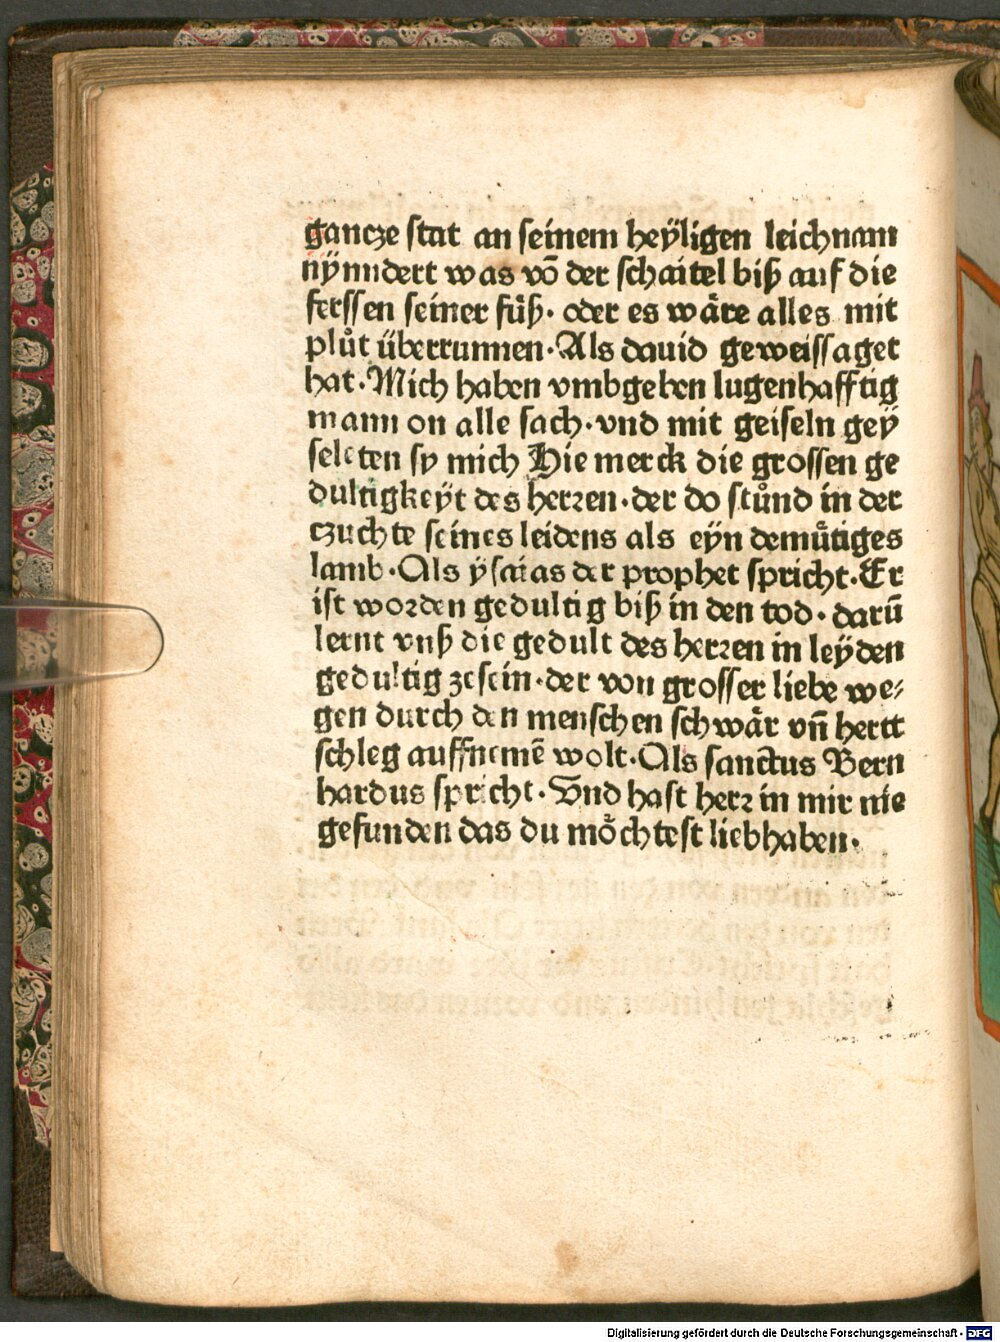 gancze stat an seinem heÿligen leichnam
nÿnndert was võ der schaitel biß auf die
ferssen seiner fuͤß· oder es waͤre alles mit
pluͦt überrunnen·Als dauid geweissaget
hat·Mich haben vmbgeben lugenhafftig
mann on alle sach·vnd mit geiseln geÿ
selten sy mich Hie merck die grossen ge
dultigkeÿt des herzen·der do stuͦnd in der
czuchte seines leidens als eÿn demuͤtiges
lamb·Als ÿsaias der prophet spricht·Er
ist worden gedultig biß in den tod·darū
lernt vnß die gedult des herzen in leÿden
gedultig zesein·der von grosser liebe we⸗
gen durch den menschen schwaͤr vñ hertt
schleg auffnemē wolt·Als sanctus Bern
hardus spricht·Vnd hast herz in mir nie
gefunden das du moͤchtest liebhaben·
Digitalisierung gefördert durch die Deutsche Forschungsgemeinschaft - DFG